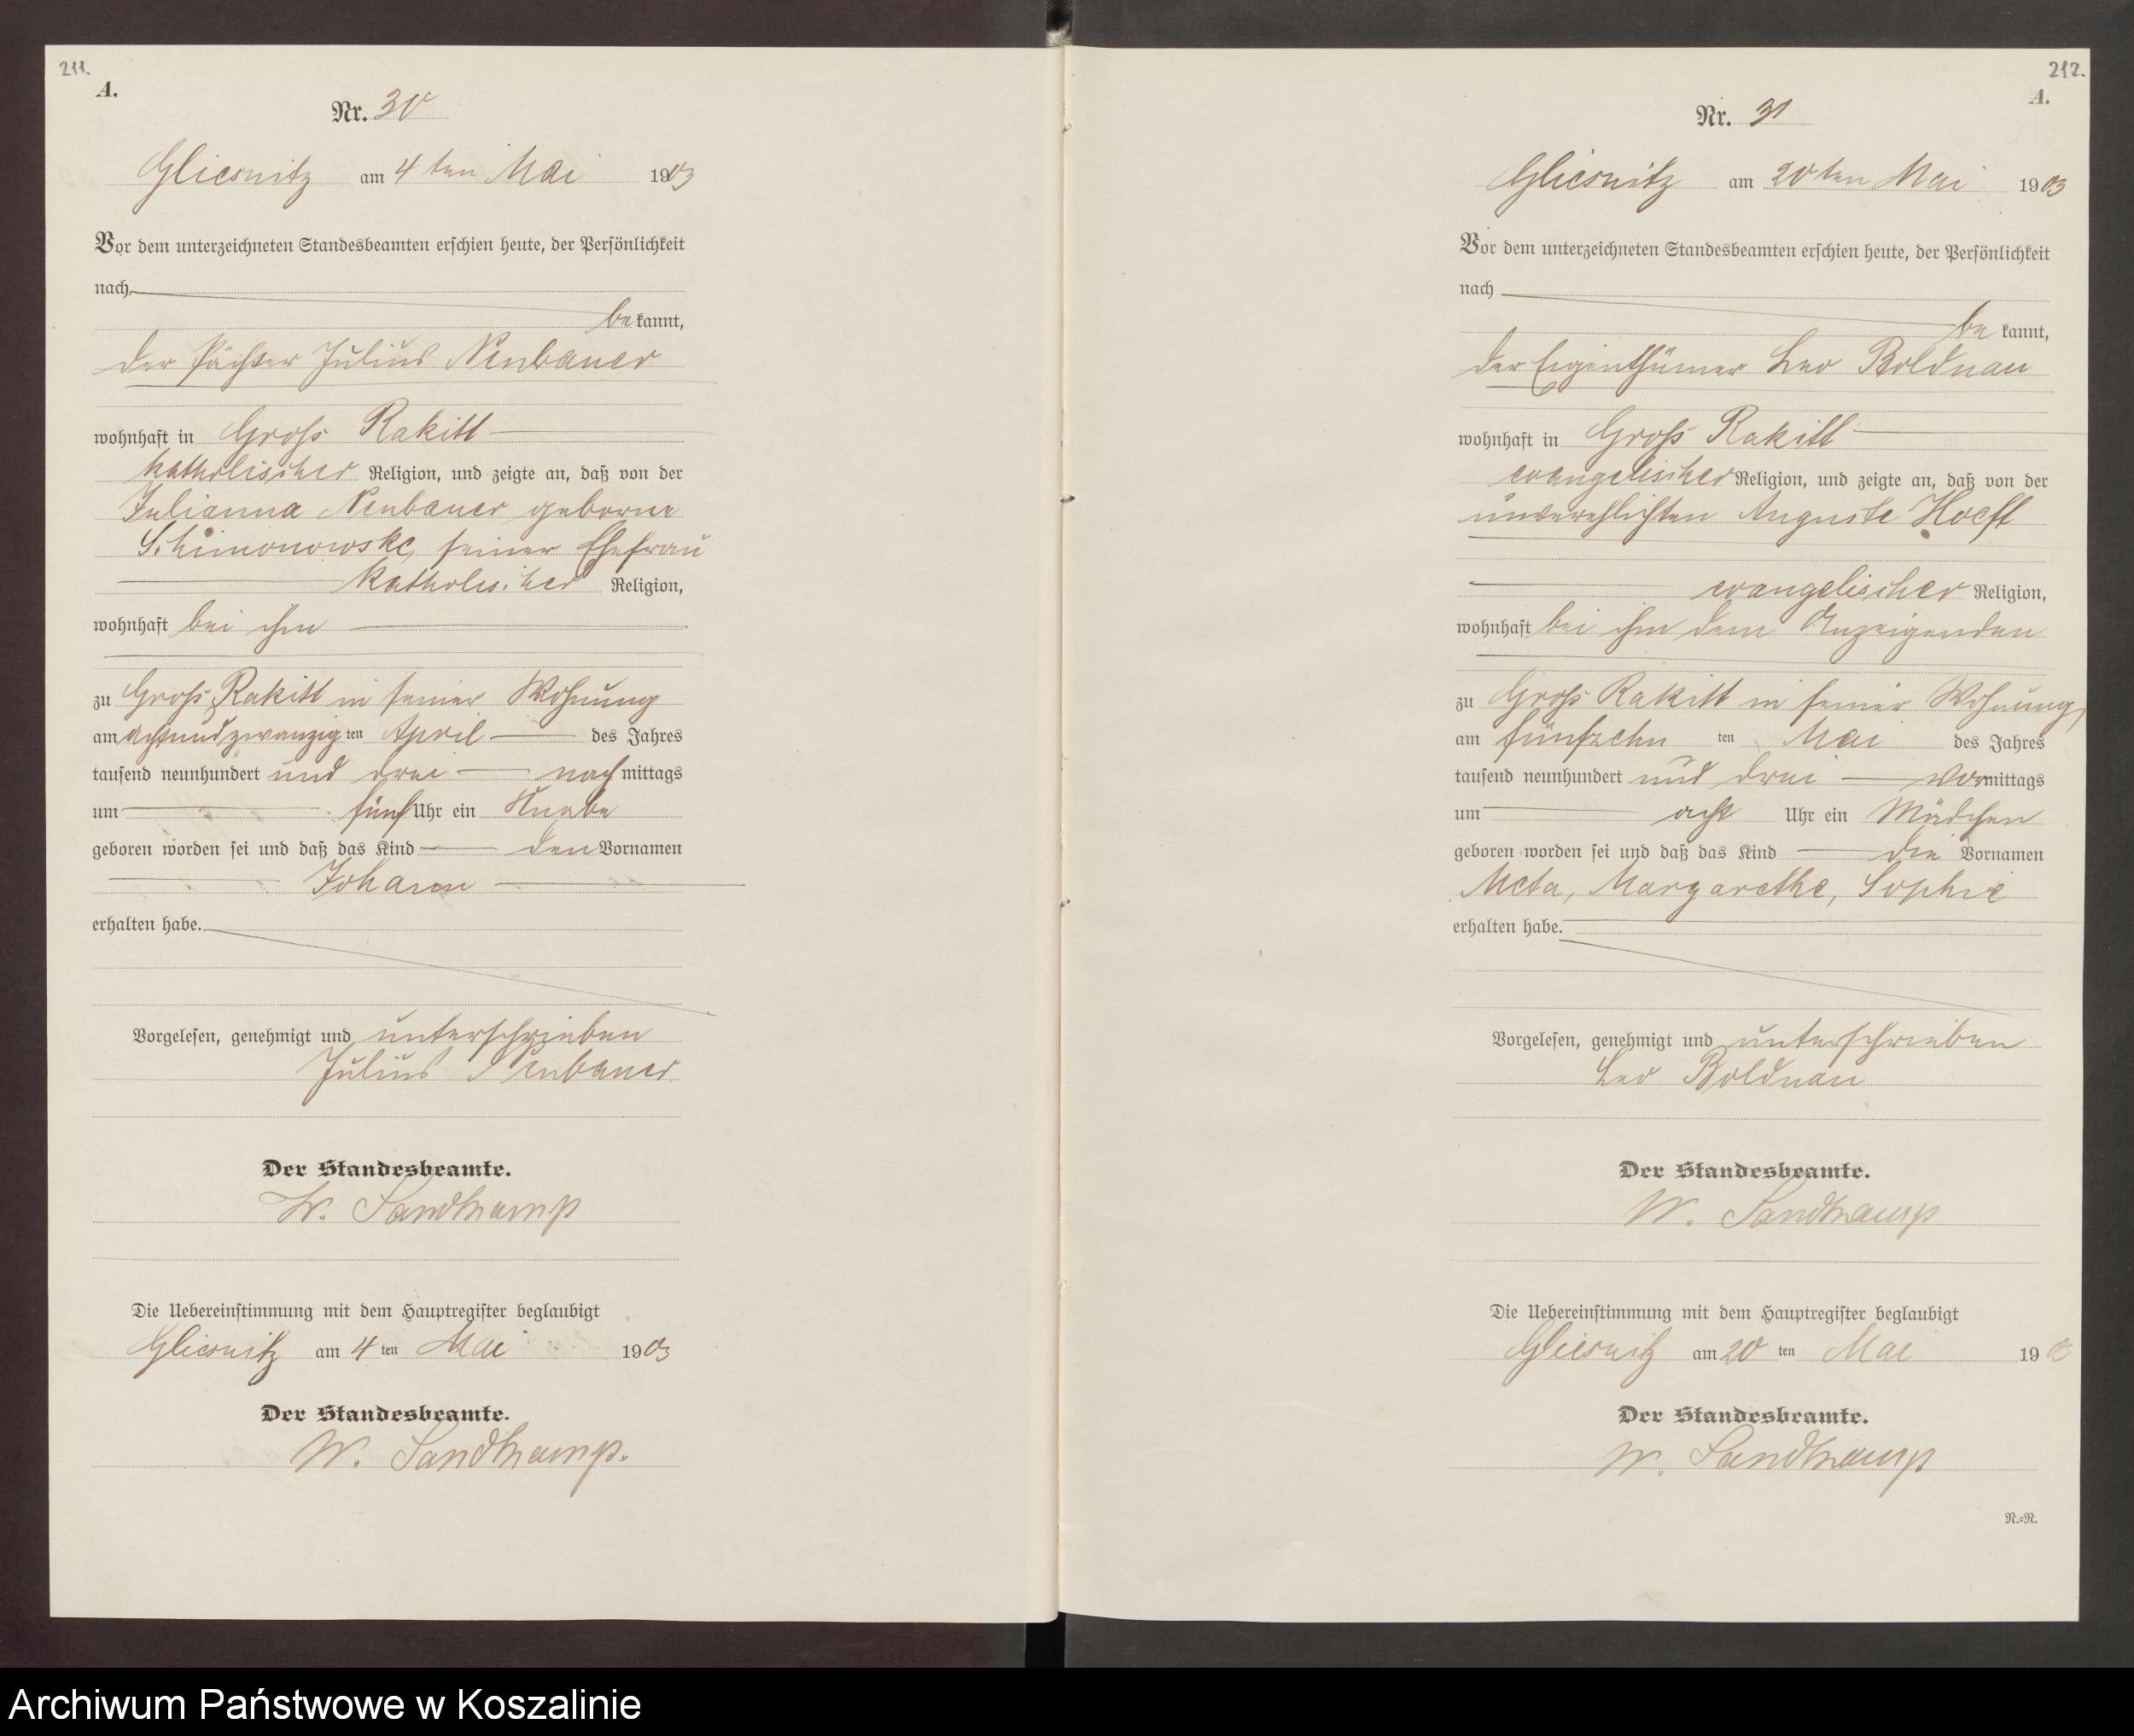 211.
A.
Nr. 30
Gliesnitz am 4 ten Mai 1903
Vor dem unterzeichneten Standesbeamten erschien heute, der Persönlichkeit
nach
be kannt,
der Pächter Julius Neubauer
wohnhaft in Groß Rakitt
katholischer Religion, und zeigte an, daß von der
Julianna Neubauer geborne
Schimonowski, seiner Ehefrau
katholischer Religion,
wohnhaft bei ihm
zu Groß Rakitt in seiner Wohnung
am achtundzwanzig ten April des Jahres
tausend neunhundert und drei nach mittags
um fünf Uhr ein Knabe
geboren worden sei und daß das Kind den Vornamen
Johann
erhalten habe.
Vorgelesen, genehmigt und unterschrieben
Julius Neubauer
Der Standesbeamte.
W. Sandkamp
Die Uebereinstimmung mit dem Hauptregister beglaubigt
Gliesnitz am 4 ten Mai 1903
Der Standesbeamte.
W. Sandkamp.
212.
A.
Nr. 31
Gliesnitz am 20 ten Mai 1903
Vor dem unterzeichneten Standesbeamten erschien heute, der Persönlichkeit
nach
be kannt,
der Eigenthümer Leo Boldnau
wohnhaft in Groß Rakitt
evangelischer Religion, und zeigte an, daß von der
unverehlichten Auguste Hoeft
evangelischer Religion,
wohnhaft bei ihm dem Anzeigenden
zu Groß Rakitt in seiner Wohnung,
am fünfzehn ten Mai des Jahres
tausend neunhundert und drei vor mittags
um acht Uhr ein Mädchen
geboren worden sei und daß das Kind die Vornamen
Meta, Margarethe, Sophie
erhalten habe.
Vorgelesen, genehmigt und unterschrieben
Leo Boldnau
Der Standesbeamte.
W. Sandkamp
Die Uebereinstimmung mit dem Hauptregister beglaubigt
Gliesnitz am 20 ten Mai 1903
Der Standesbeamte.
W. Sandkamp
N.=N.
Archiwum Państwowe w Koszalinie